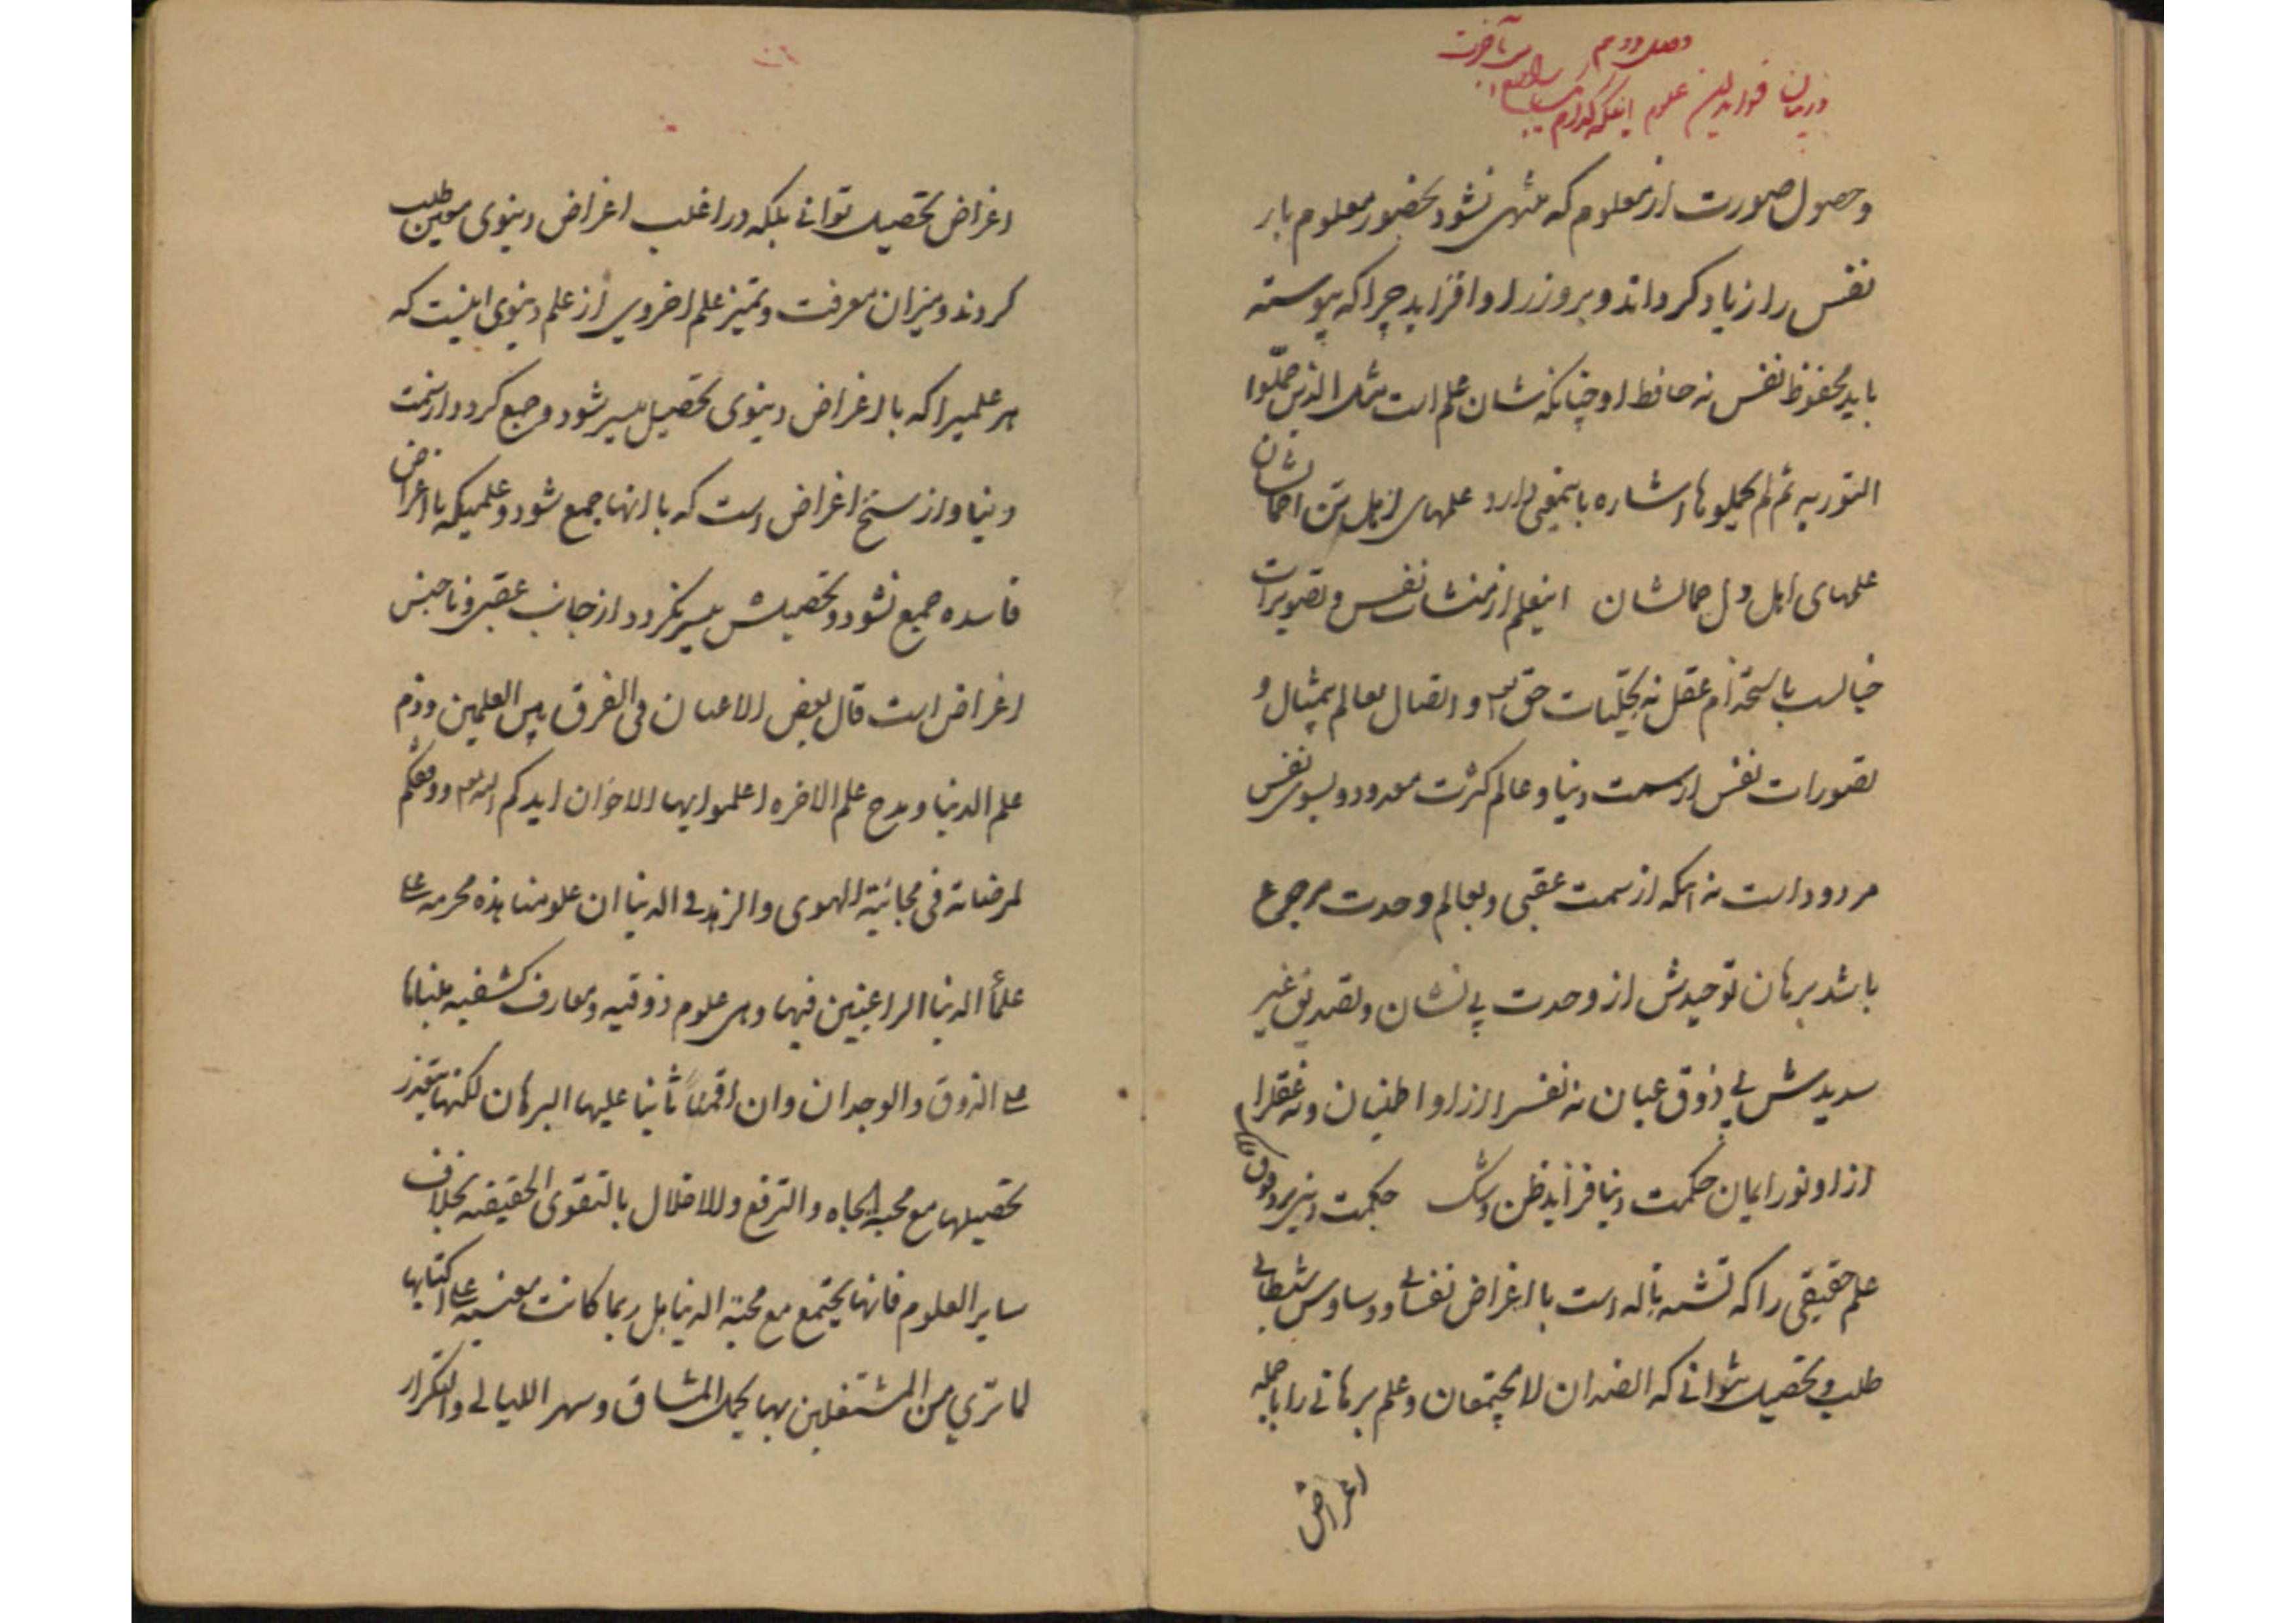 وصل دوم
در بیان فواید این علوم اینکه کدام
وحصول صورت از معلوم که منتهی نشود بحضور معلوم بار
نفس را زیاد کرداند و بروزر او افزاید چرا که پیوسته
باید محفوظ نفس نه حافظ او چنانکه شان علم است مثل الذین حملوا
التوریه ثم لم یحملوها اشاره باینمعنی دارد علمهای اهل تن احمالشان
علمهای اهل دل حمالشان اینعلم از منشات نفس و تصویرات
خیالست باستخدام عقل نه تجلیات حق و اتصال بعالم مثال و
تصورات نفس از سمت دنیا و عالم کثرت معدود و بسوی نفس
مردود است نه انکه از سمت عقبی و بعالم وحدت مرجوع
باشد برهان توحیدش از وحدت بی نشان و تصدیق غیر
سدیدش بی ذوق عیان نه نفسرا از او اطمینان و نه عقلرا
از او نور ایمان حکمت دنیا فزاید ظن و شک حکمت دینی برد فوق فلک
علم حقیقی را که تشبه باله است با اغراض نفسانی و وساوس شیطانی
طلب و تحصیل نتوانی که الضدان لا یجتمعان و علم برهانی را با جمله
اغراض
اغراض تحصیل توانی بلکه در اغلب اغراض دنیوی معین طلب
کردند و میزان معرفت و تمیز علم اخروی از علم دنیوی اینست که
هر علمیرا که با اغراض دنیوی تحصیل میسر شود و جمع کردد از سمت
دنیا و از سنخ اغراض است که با انها جمع شود و علمیکه با اغراض
فاسده جمع نشود و تحصیلش میسر نکردد از جانب عقبی و نا جنس
اغراض است قال بعض الاعیان فی الفرق بین العلمین و ذم
علم الدنیا و مدح علم الاخره اعلموا ایها الاخوان ایدکم الله ووفقکم
لمرضاته فی مجانبة الهوی والزهد فی الدنیا ان علومنا هذه محرمه علی
علماء الدنیا الراغبین فیها وهی علوم ذوقیه ومعارف کشفیه مبناها
علی الذوق والوجدان وان اقمنا ثانیا علیها البرهان لکنها یتعذر
تحصیلها مع محبه الجاه والترفع والاخلال بالتقوی الحقیقه بخلاف
سایر العلوم فانها یجتمع مع محبة الدنیا بل ربما کانت معینه علی اکتسابها
لما تری من المشتغلین بها یحمل المشاق وسهر اللیالی والتکرار